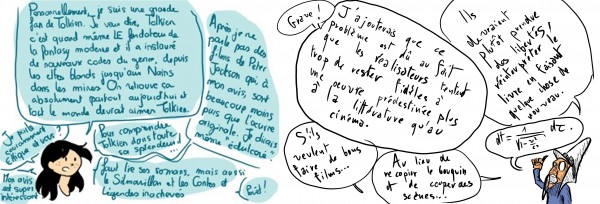 Personnellement, je suis une grande
fan de Tolkien. Je veux dire, Tolkien
c'est quand même LE fondateur de
la fantasy moderne et il a instauré
de nouveaux codes du genre, depuis
les elfes blonds jusqu'aux Nains
dans les mines. On retrouve ça
absolument partout aujourd'hui et
tout le monde devrait aimer Tolkien.
Après je ne
parle pas des
films de Peter
Jackson qui, à
mon avis, sont
beaucoup moins
purs que l'œuvre
originale. Je dirais
même édulcorés
Je suis
vraiment
elfique et vous?
Pour comprendre
Tolkien dans toute
sa splendeur...
Mon avis
est super
intéressant
faut lire ses romans, mais aussi
le Silmarillion et les Contes et
Légendes inachevés
Paid!
Grave!
J'ajouterais que ce
problème est dû au fait
que les réalisateurs tentent
trop de rester fidèles à
une oeuvre prédestinée plus
à la littérature qu'au
cinéma.
Ils
auraient
plutôt prendre
des libertés,
réinterpréter le
livre en faisant
quelque chose de
nouveau.
S'ils
veulent
faire de bons
films...
Au lieu de
recopier le bouquin
et de couper des
scènes...